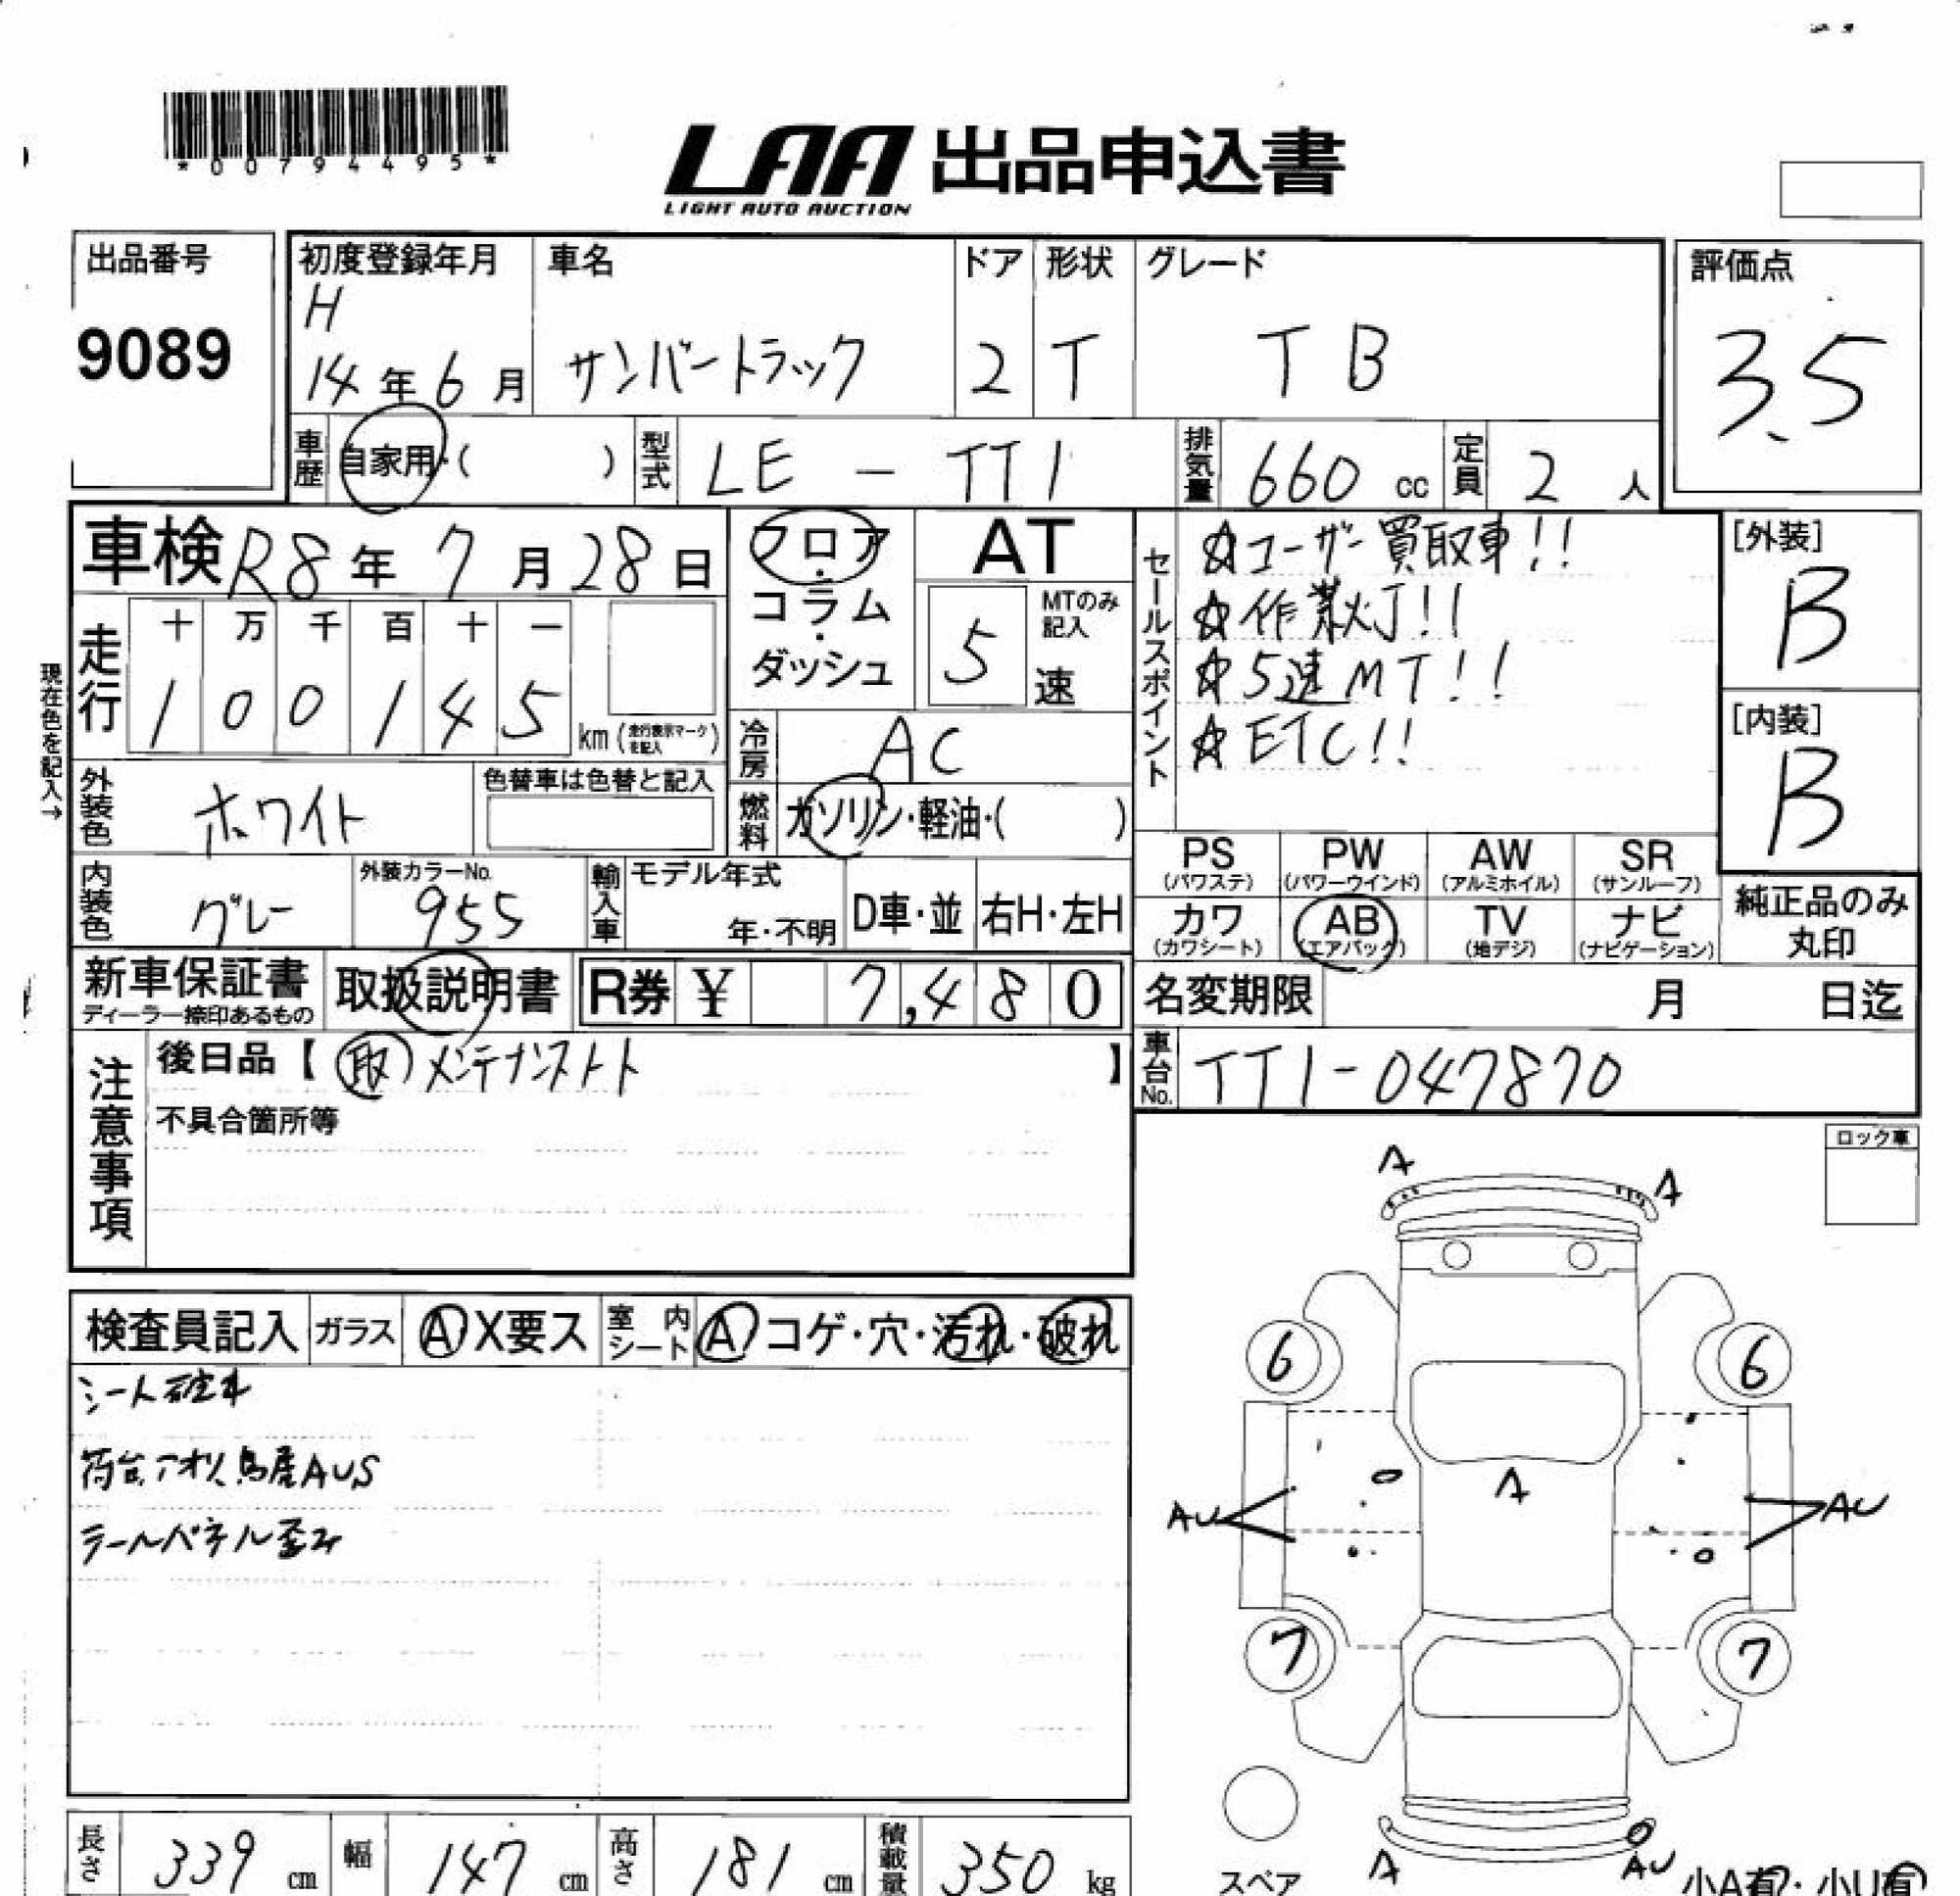 *00794495*
LAA 出品申込書
LIGHT AUTO AUCTION
出品番号
9089
初度登録年月
H
14年6月
車名
サンバートラック
ドア
2
形状
T
グレード
TB
評価点
3.5
車歴
自家用・( )
型式
LE-TT1
排気量
660 cc
定員
2人
車検 R8年7月28日
フロア・コラム・ダッシュ
AT
5
MTのみ記入
速
セールスポイント
☆ユーザー買取車!!
☆作業灯!!
☆5速MT!!
☆ETC!!
[外装]
B
[内装]
B
現在色を記入→
走行
十 万 千 百 十 一
1 0 0 1 4 5
km(走行表示マークを記入)
冷房
AC
外装色
ホワイト
色替車は色替と記入
燃料
ガソリン・軽油・( )
内装色
グレー
外装カラーNo.
955
輸入車
モデル年式
年・不明
D車・並
右H・左H
PS
(パワステ)
PW
(パワーウインド)
AW
(アルミホイル)
SR
(サンルーフ)
カワ
(カワシート)
AB
(エアバック)
TV
(地デジ)
ナビ
(ナビゲーション)
純正品のみ
丸印
新車保証書
ディーラー捺印あるもの
取扱説明書
R券 ¥ 7,480
名変期限 月 日迄
注意事項
後日品【取 メンテナンスノート】
不具合箇所等
車台No.
TT1-047870
ロック車
検査員記入
ガラス
A X要ス
室内シート
A コゲ・穴・汚れ・破れ
シート破れ
荷台アオリ鳥居AUS
テールパネル歪み
A
A
6
6
A
AU
AU
7
7
A
AU
スペア
小A有・小U有
長さ
339 cm
幅
147 cm
高さ
181 cm
積載量
350 kg